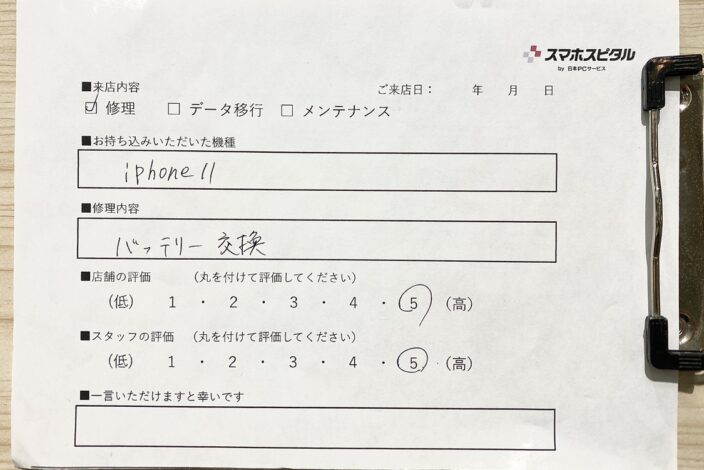 スマホスピタル
by 日本PCサービス
■来店内容
ご来店日： 年 月 日
☑ 修理 □ データ移行 □ メンテナンス
■お持ち込みいただいた機種
iphone 11
■修理内容
バッテリー 交換
■店舗の評価 （丸を付けて評価してください）
（低） 1 ・ 2 ・ 3 ・ 4 ・ 5 （高）
■スタッフの評価 （丸を付けて評価してください）
（低） 1 ・ 2 ・ 3 ・ 4 ・ 5 （高）
■一言いただけますと幸いです